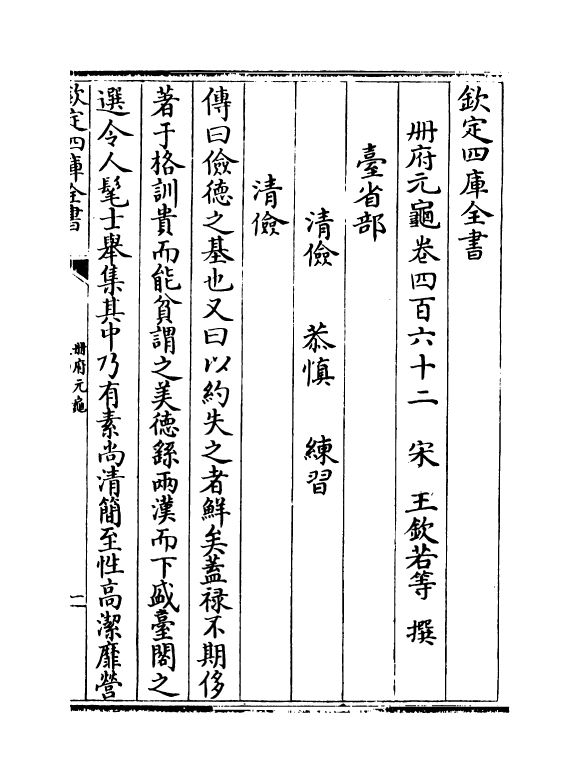 欽定四庫全書
册府元龜卷四百六十二 宋 王欽若等 撰
臺省部
清儉 恭慎 練習
清儉
傳曰儉德之基也又曰以約失之者鮮矣蓋禄不期侈
著于格訓貴而能貧謂之美德繇兩漢而下盛臺閣之
選令人髦士舉集其中乃有素尚清簡至性高潔靡營
欽定四庫全書
册府元龜
一